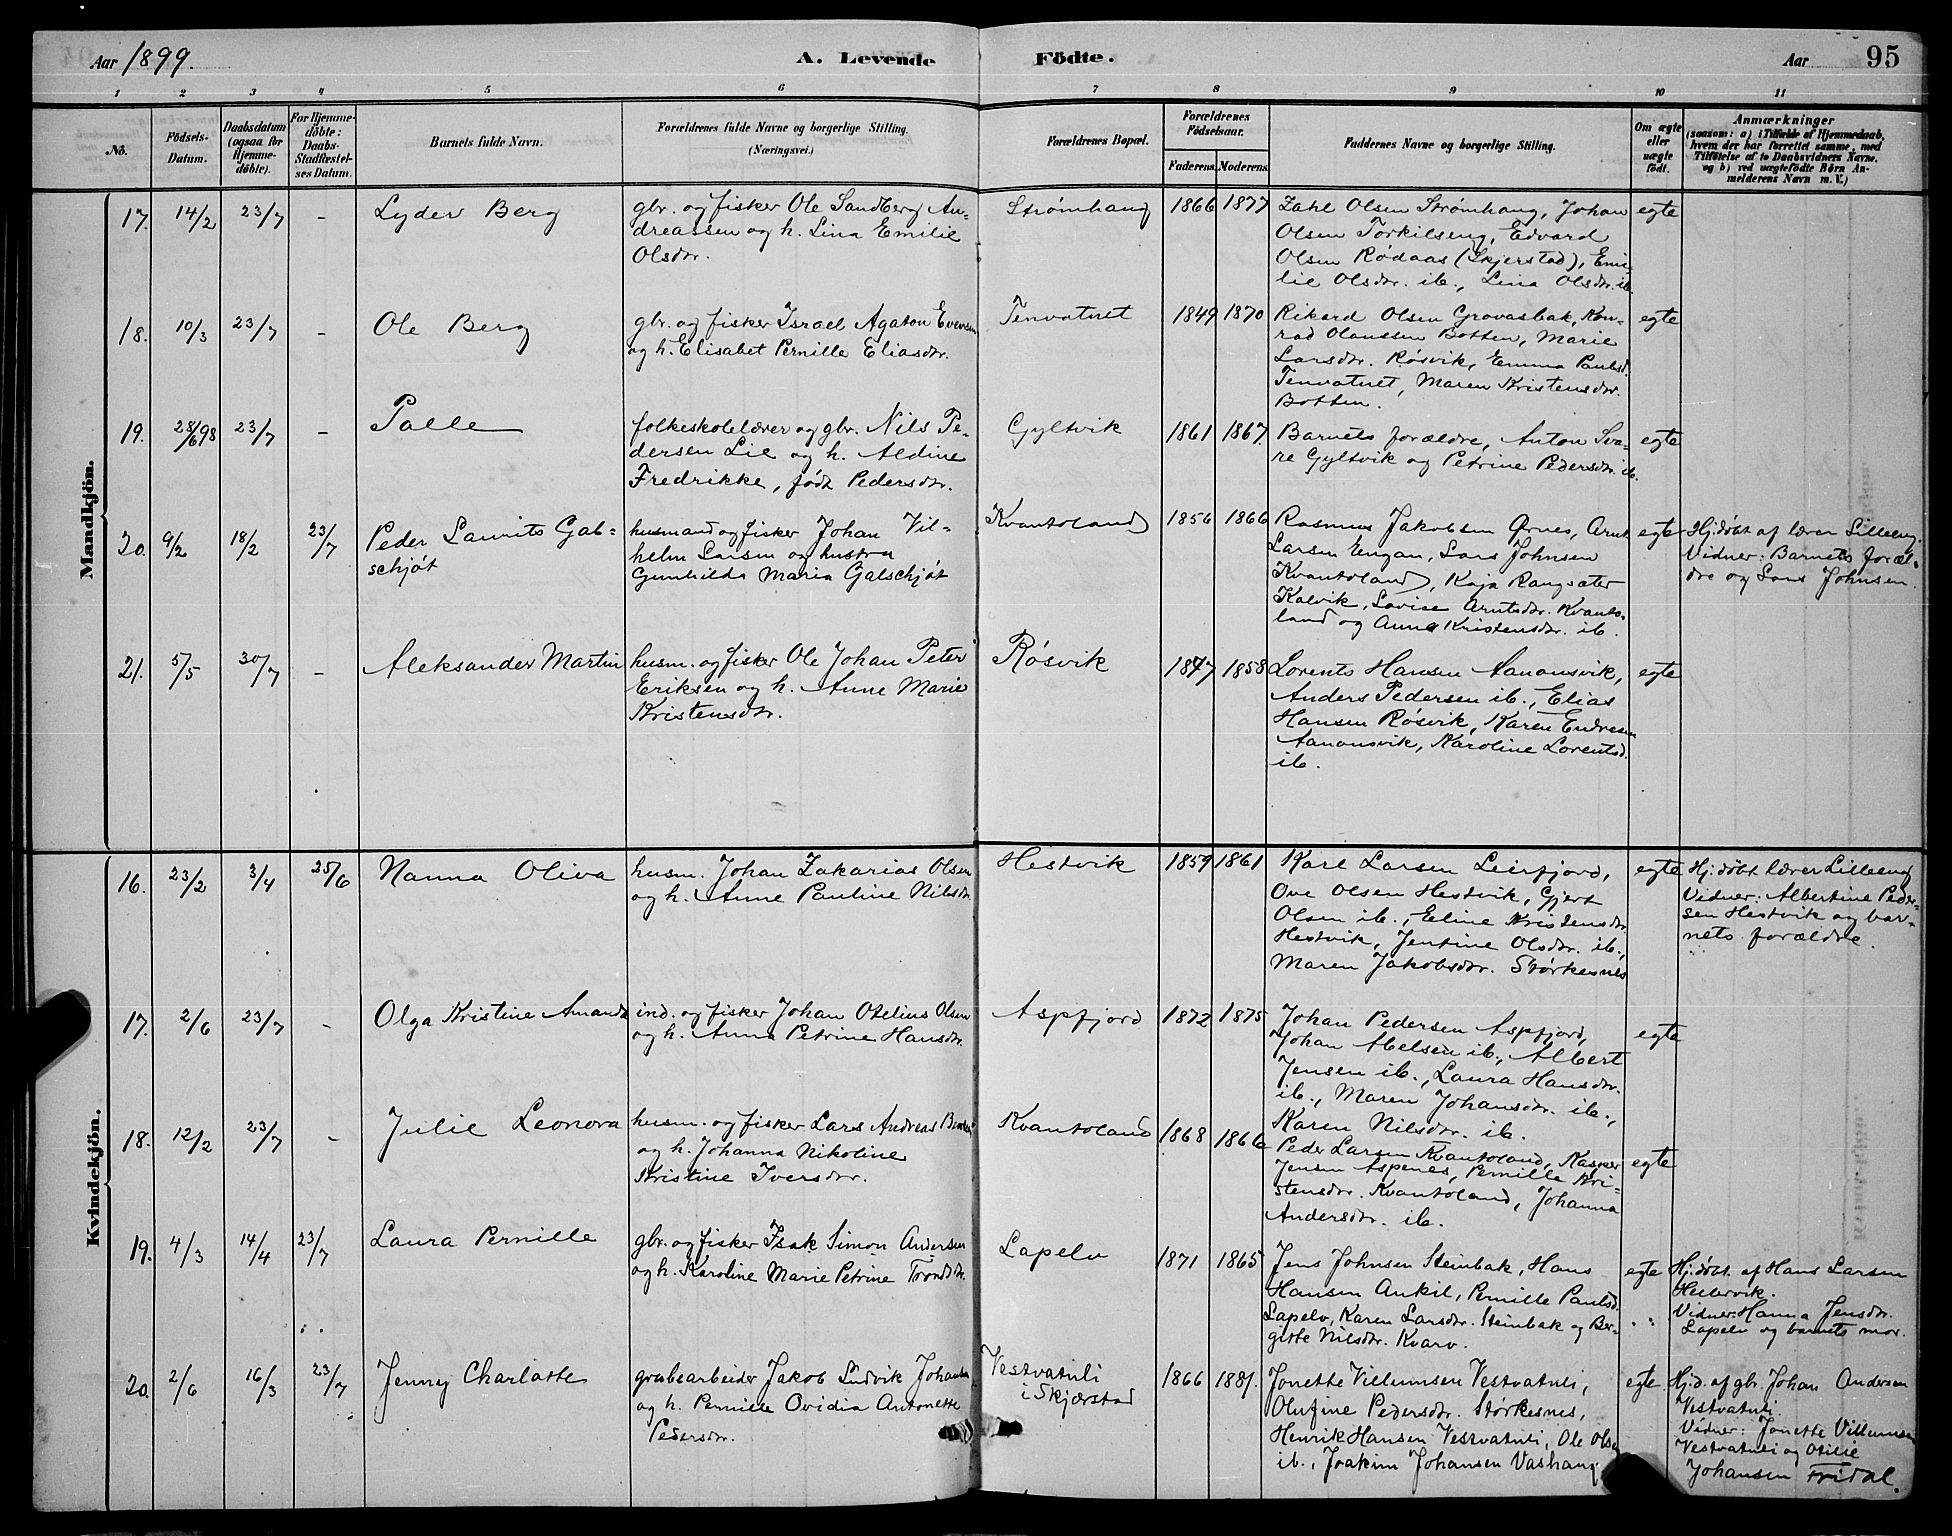 Aar 1899.
A. Levende
Födte.
Aar
95
1
2
3
4
5
6
7
8
9
10
11
No.
Födsels-
Datum.
Daabsdatum
(ogsaa for
Hjemme-
døbte).
For Hjemme-
døbte:
Daabs-
Stadfæstel-
ses Datum.
Barnets fulde Navn.
Forældrenes fulde Navne og borgerlige Stilling.
(Næringsvei.)
Forældrenes Bopæl.
Forældrenes
Födselsaar.
Faderens.
Moderens.
Faddernes Navne og borgerlige Stilling.
Om ægte
eller
uægte
født.
Anmærkninger
(saasom: a) i Tilfælde af Hjemmedaab,
hvem der har forrettet samme, med
Tilføielse af to Daabsvidners Navne.
og b) ved uægtefödte Börn An-
melderens Navn m. V.)
Mandkjön.
17.
14/2
23/7
-
Lyder Berg
gbr. og fisker Ole Sandberg An-
dreassen og h. Lina Emilie
Olsdtr.
Strømhaug
1866
1877
Zahl Olsen Strømhaug, Johan
Olsen Torkilseng, Edvard
Olsen Rødaas (Skjerstad), Emi-
lie Olsdtr. ib., Lina Olsdtr. ib.
egte
18.
10/3
23/7
-
Ole Berg
gbr. og fisker Israel Agaton Evensen
og h. Elisabet Pernille Eliasdtr.
Tenvatnet
1849
1870
Rikard Olsen Grovasbak, Kon-
rad Olaussen Botten, Marie
Larsdtr. Røsvik, Emma Paulsd.
Tenvatnet, Maren Kristensdtr.
Botten.
egte
19.
28/6 98
23/7
-
Palle
folkeskolelærer og gbr. Nils Pe-
dersen Lie og h. Aldine
Fredrikke, født Pedersdtr.
Gyltvik
1861
1867
Barnets forældre, Anton Sva-
re Gyltvik og Petrine Pedersdtr. ib.
egte
20.
9/2
18/2
23/7
Peder Laurits Gal-
schjøt
husmand og fisker Johan Vil-
helm Larsen og hustru
Gunhilda Maria Galschjøt
Kvantoland
1856
1866
Rasmus Jakobsen Ørnes, Arnt
Larsen Engan, Lars Johnsen
Kvantoland, Kaja Rangsæter
Kalvik, Lovise Arntsdtr. Kvanto-
land og Anna Kristensdtr. ib.
egte
Hj.døbt af lærer Lilleeng.
Vidner: Barnets foræl-
dre og Lars Johnsen.
21.
5/5
30/7
-
Aleksander Martin
husm. og fisker Ole Johan Peter
Eriksen og h. Anne Marie
Kristensdtr.
Røsvik
1847
1858
Lorents Hansen Aanonsvik,
Anders Pedersen ib., Elias
Hansen Røsvik, Karen Endresen
Aanonsvik, Karoline Lorentsd.
ib.
egte
Kvindekjön.
16.
23/2
3/4
25/6
Nanna Oliva
husm. Johan Zakarias Olsen
og h. Anne Pauline Nilsdtr.
Hestvik
1859
1861
Karl Larsen Leirfjord,
Ove Olsen Hestvik, Gjert
Olsen ib., Eline Kristensdtr.
Hestvik, Jentine Olsdtr. ib.,
Maren Jakobsdtr. Størkesnes
egte
Hj.døbt lærer Lilleeng
Vidner: Albertine Peder-
sen Hestvik og bar-
nets forældre.
17.
2/6
23/7
-
Olga Kristine Amanda
ind. og fisker Johan Otelius Olsen
og h. Anna Petrine Hansdtr.
Aspfjord
1872
1875
Johan Pedersen Aspfjord,
Johan Abelsen ib., Albert
Jensen ib., Laura Hansdtr.
ib., Maren Johansdtr. ib.,
Karen Nilsdtr. ib.
egte
18.
12/2
23/7
-
Julie Leonora
husm. og fisker Lars Andreas
og h. Johanna Nikoline
Kristine Iversdtr.
Kvantoland
1868
1866
Peder Larsen Kvantoland, Kasper
Jensen Aspenes, Pernille Kri-
stensdtr. Kvantoland, Johanna
Andersdtr. ib.
egte
19.
4/3
14/4
23/7
Laura Pernille
gbr. og fisker Isak Simon Andersen
og h. Karoline Marie Petrine Trondsdtr.
Lapelv
1871
1865
Jens Johnsen Steinbak, Hans
Hansen Ankil, Pernille Paulsd.
Lapelv, Karen Larsdtr. Steinbak og Ber-
gitte Nilsdtr. Kvarv.
egte
Hj.døbt. af Hans Larsen
Hellervik.
Vidner: Hanna Jensdtr.
Lapelv og barnets mor.
20.
2/6
16/3
23/7
Jenny Charlotte
grubearbeider Jakob Ludvik Johansen
og h. Pernille Ovidia Antonette
Pedersdtr.
Vestvatnli
i Skjærstad
1866
1881.
Jonette Villumsen Vestvatnli,
Olufine Pedersdtr. Størkesnes,
Henrik Hansen Vestvatnli, Ole Olsen
ib., Joakim Johansen Vashaug
egte.
Hj.d. af gbr. Johan Andersen
Vestvatnli.
Vidner: Jonette Villumsen
Vestvatnli og Otilie
Johansen Fridal.